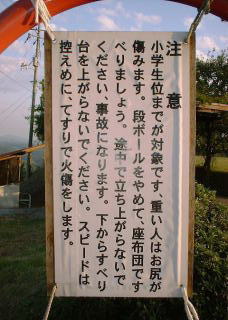 注意
小学生位までが対象です、重い人はお尻が
傷みます。段ボールをやめて、座布団です
べりましょう。途中で立ち上がらないで
ください、事故になります。下からすべり
台を上がらないでください。スピードは
控えめに、てすりで火傷をします。